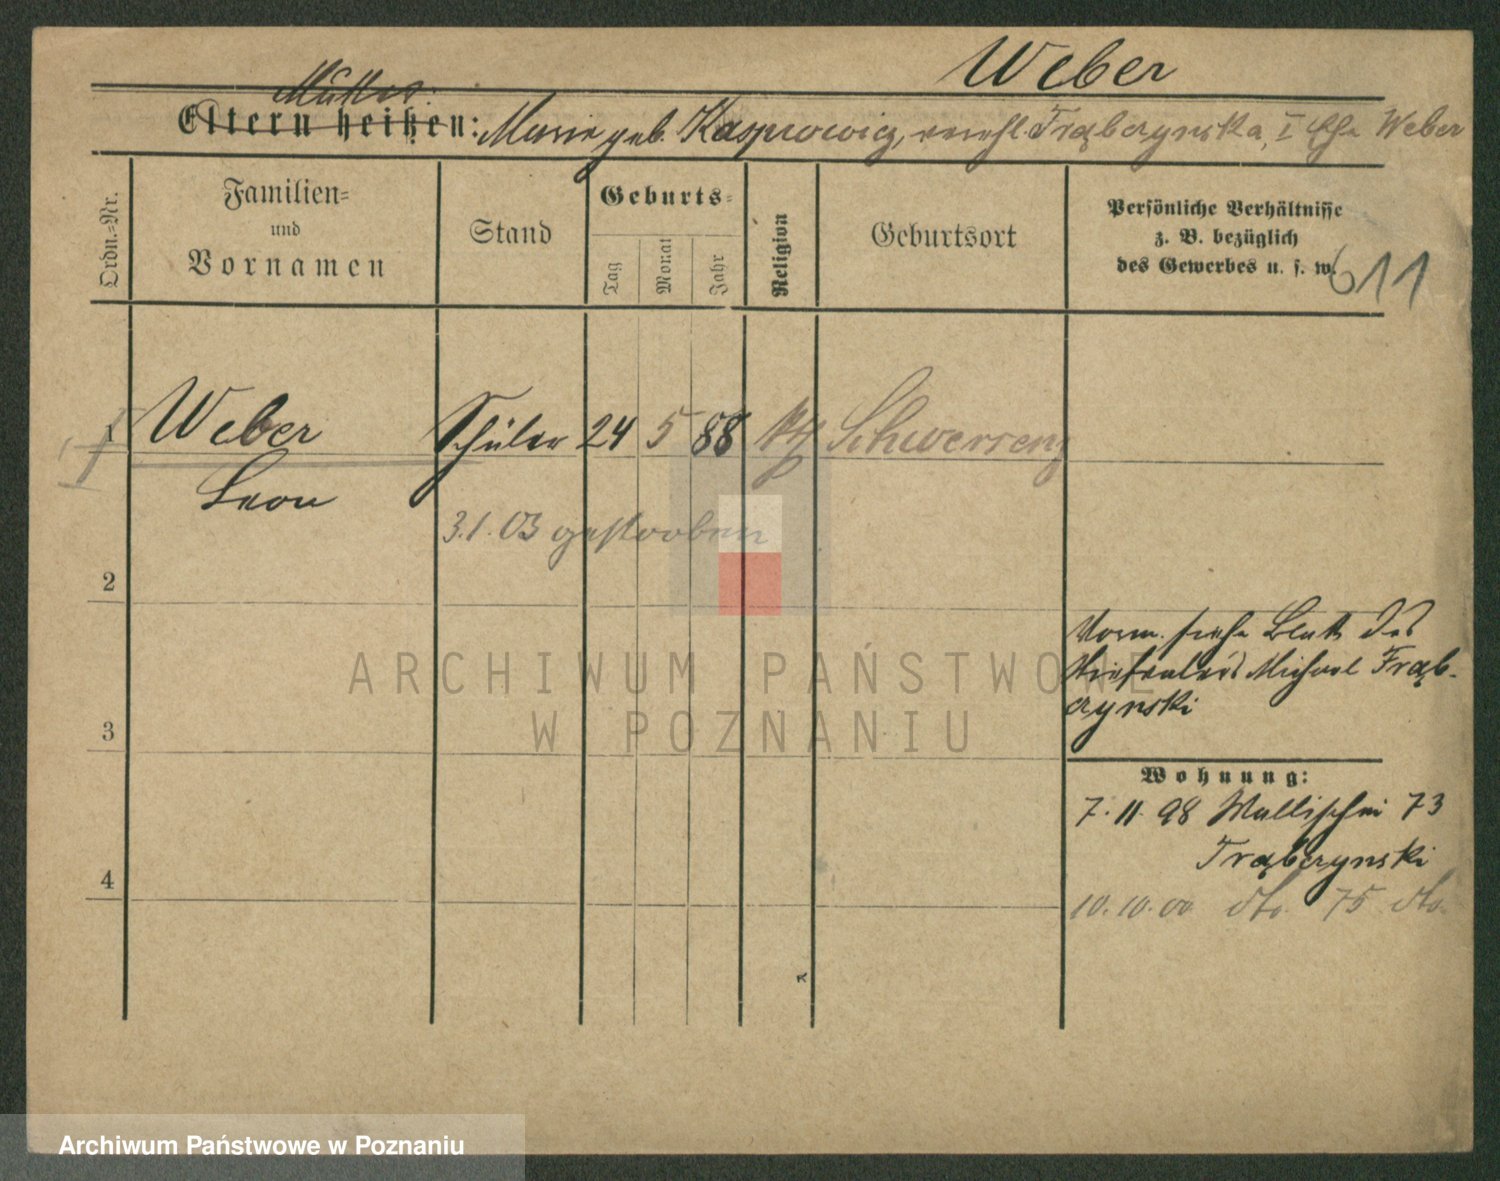 Weber
Mutter
Eltern heißen: Marie geb. Kasprowicz, verehl. Trąbczynska, I Ehe Weber
Ordn.=Nr.
Familien=
und
Vornamen
Stand
Geburts=
Tag
Monat
Jahr
Religion
Geburtsort
Persönliche Verhältnisse
z. B. bezüglich
des Gewerbes u. s. w.
611
1 Weber Schüler 24 5 88 kth Schwersenz
Leon
3.1.03 gestorben
2
Vorm. siehe Blatt des
Michael Trąb-
czynski
3
Wohnung:
7.11.98 Wallischei 73
Trąbczynski
4
10.10.00 dto. 75 dto.
ARCHIWUM PAŃSTWOWE
W POZNANIU
Archiwum Państwowe w Poznaniu